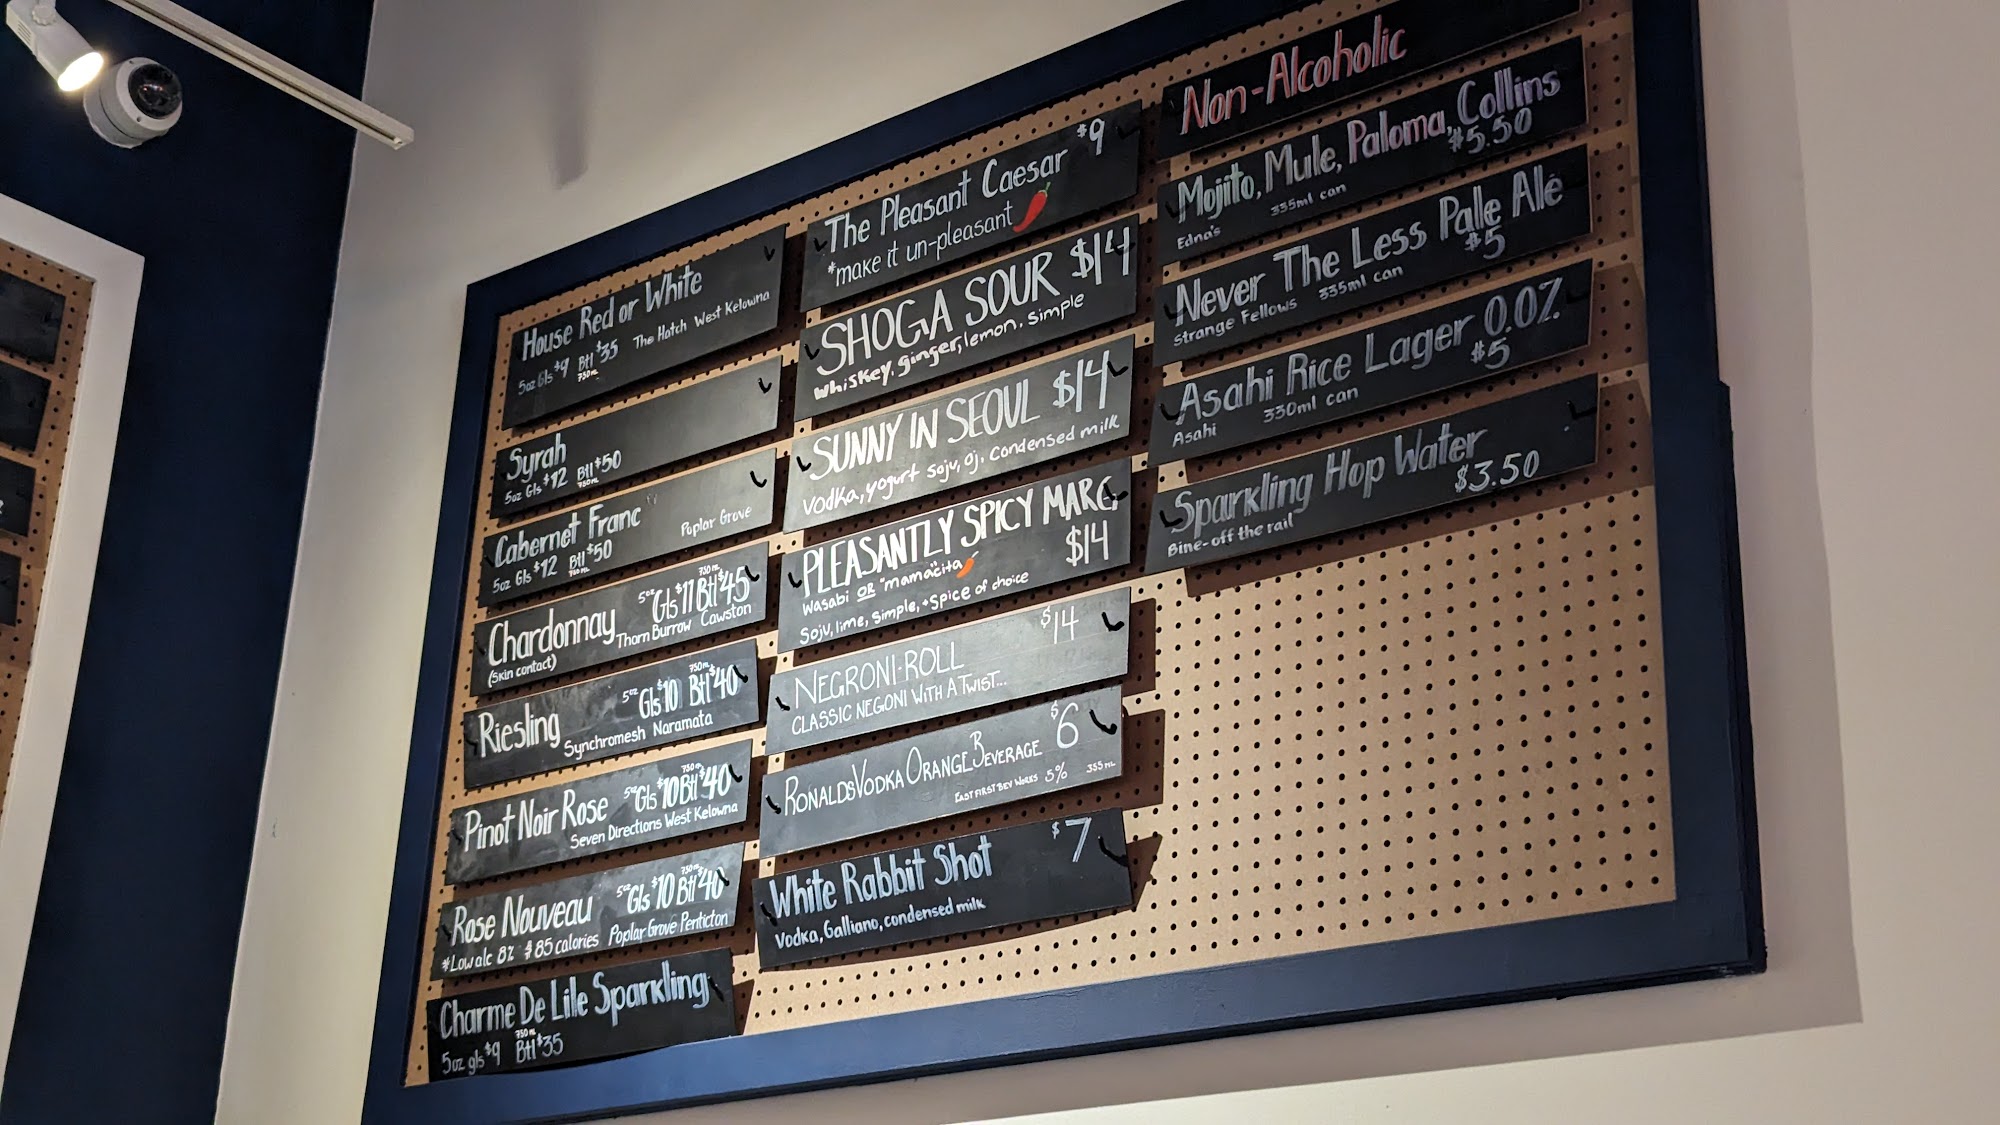 House Red or White
5oz Gls $9 Btl $35 The Hatch West Kelowna
750ml
Syrah
5oz Gls $12 Btl $50
750ml
Cabernet Franc
5oz Gls $12 Btl $50 Poplar Grove
750ml
Chardonnay 5oz Gls $11 750ml Btl $45
(Skin contact) Thorn Burrow Cawston
Riesling 5oz Gls $10 750ml Btl $40
Synchromesh Naramata
Pinot Noir Rose 5oz Gls $10 750ml Btl $40
Seven Directions West Kelowna
Rose Nouveau 5oz Gls $10 750ml Btl $40
*Low alc 8% & 85 calories Poplar Grove Penticton
Charme De Lille Sparkling
5oz gls $9 750ml Btl $35
The Pleasant Caesar $9
*make it un-pleasant
SHOGA SOUR $14
Whiskey, ginger, lemon, simple
SUNNY IN SEOUL $14
Vodka, yogurt soju, oj, condensed milk
PLEASANTLY SPICY MARG
Wasabi OR "mamacita" $14
Soju, lime, simple, + spice of choice
NEGRONI-ROLL $14
CLASSIC NEGONI WITH A TWIST...
RONALDS VODKA ORANGE BEVERAGE $6
EAST FIRST BEV WORKS 5% 355ml
White Rabbit Shot $7
Vodka, Galliano, condensed milk
Non-Alcoholic
Mojito, Mule, Paloma, Collins
Edna's 355ml can $5.50
Never The Less Pale Ale
Strange Fellows 355ml can $5
Asahi Rice Lager 0.0%
Asahi 330ml can $5
Sparkling Hop Water
Bine-off the rail $3.50